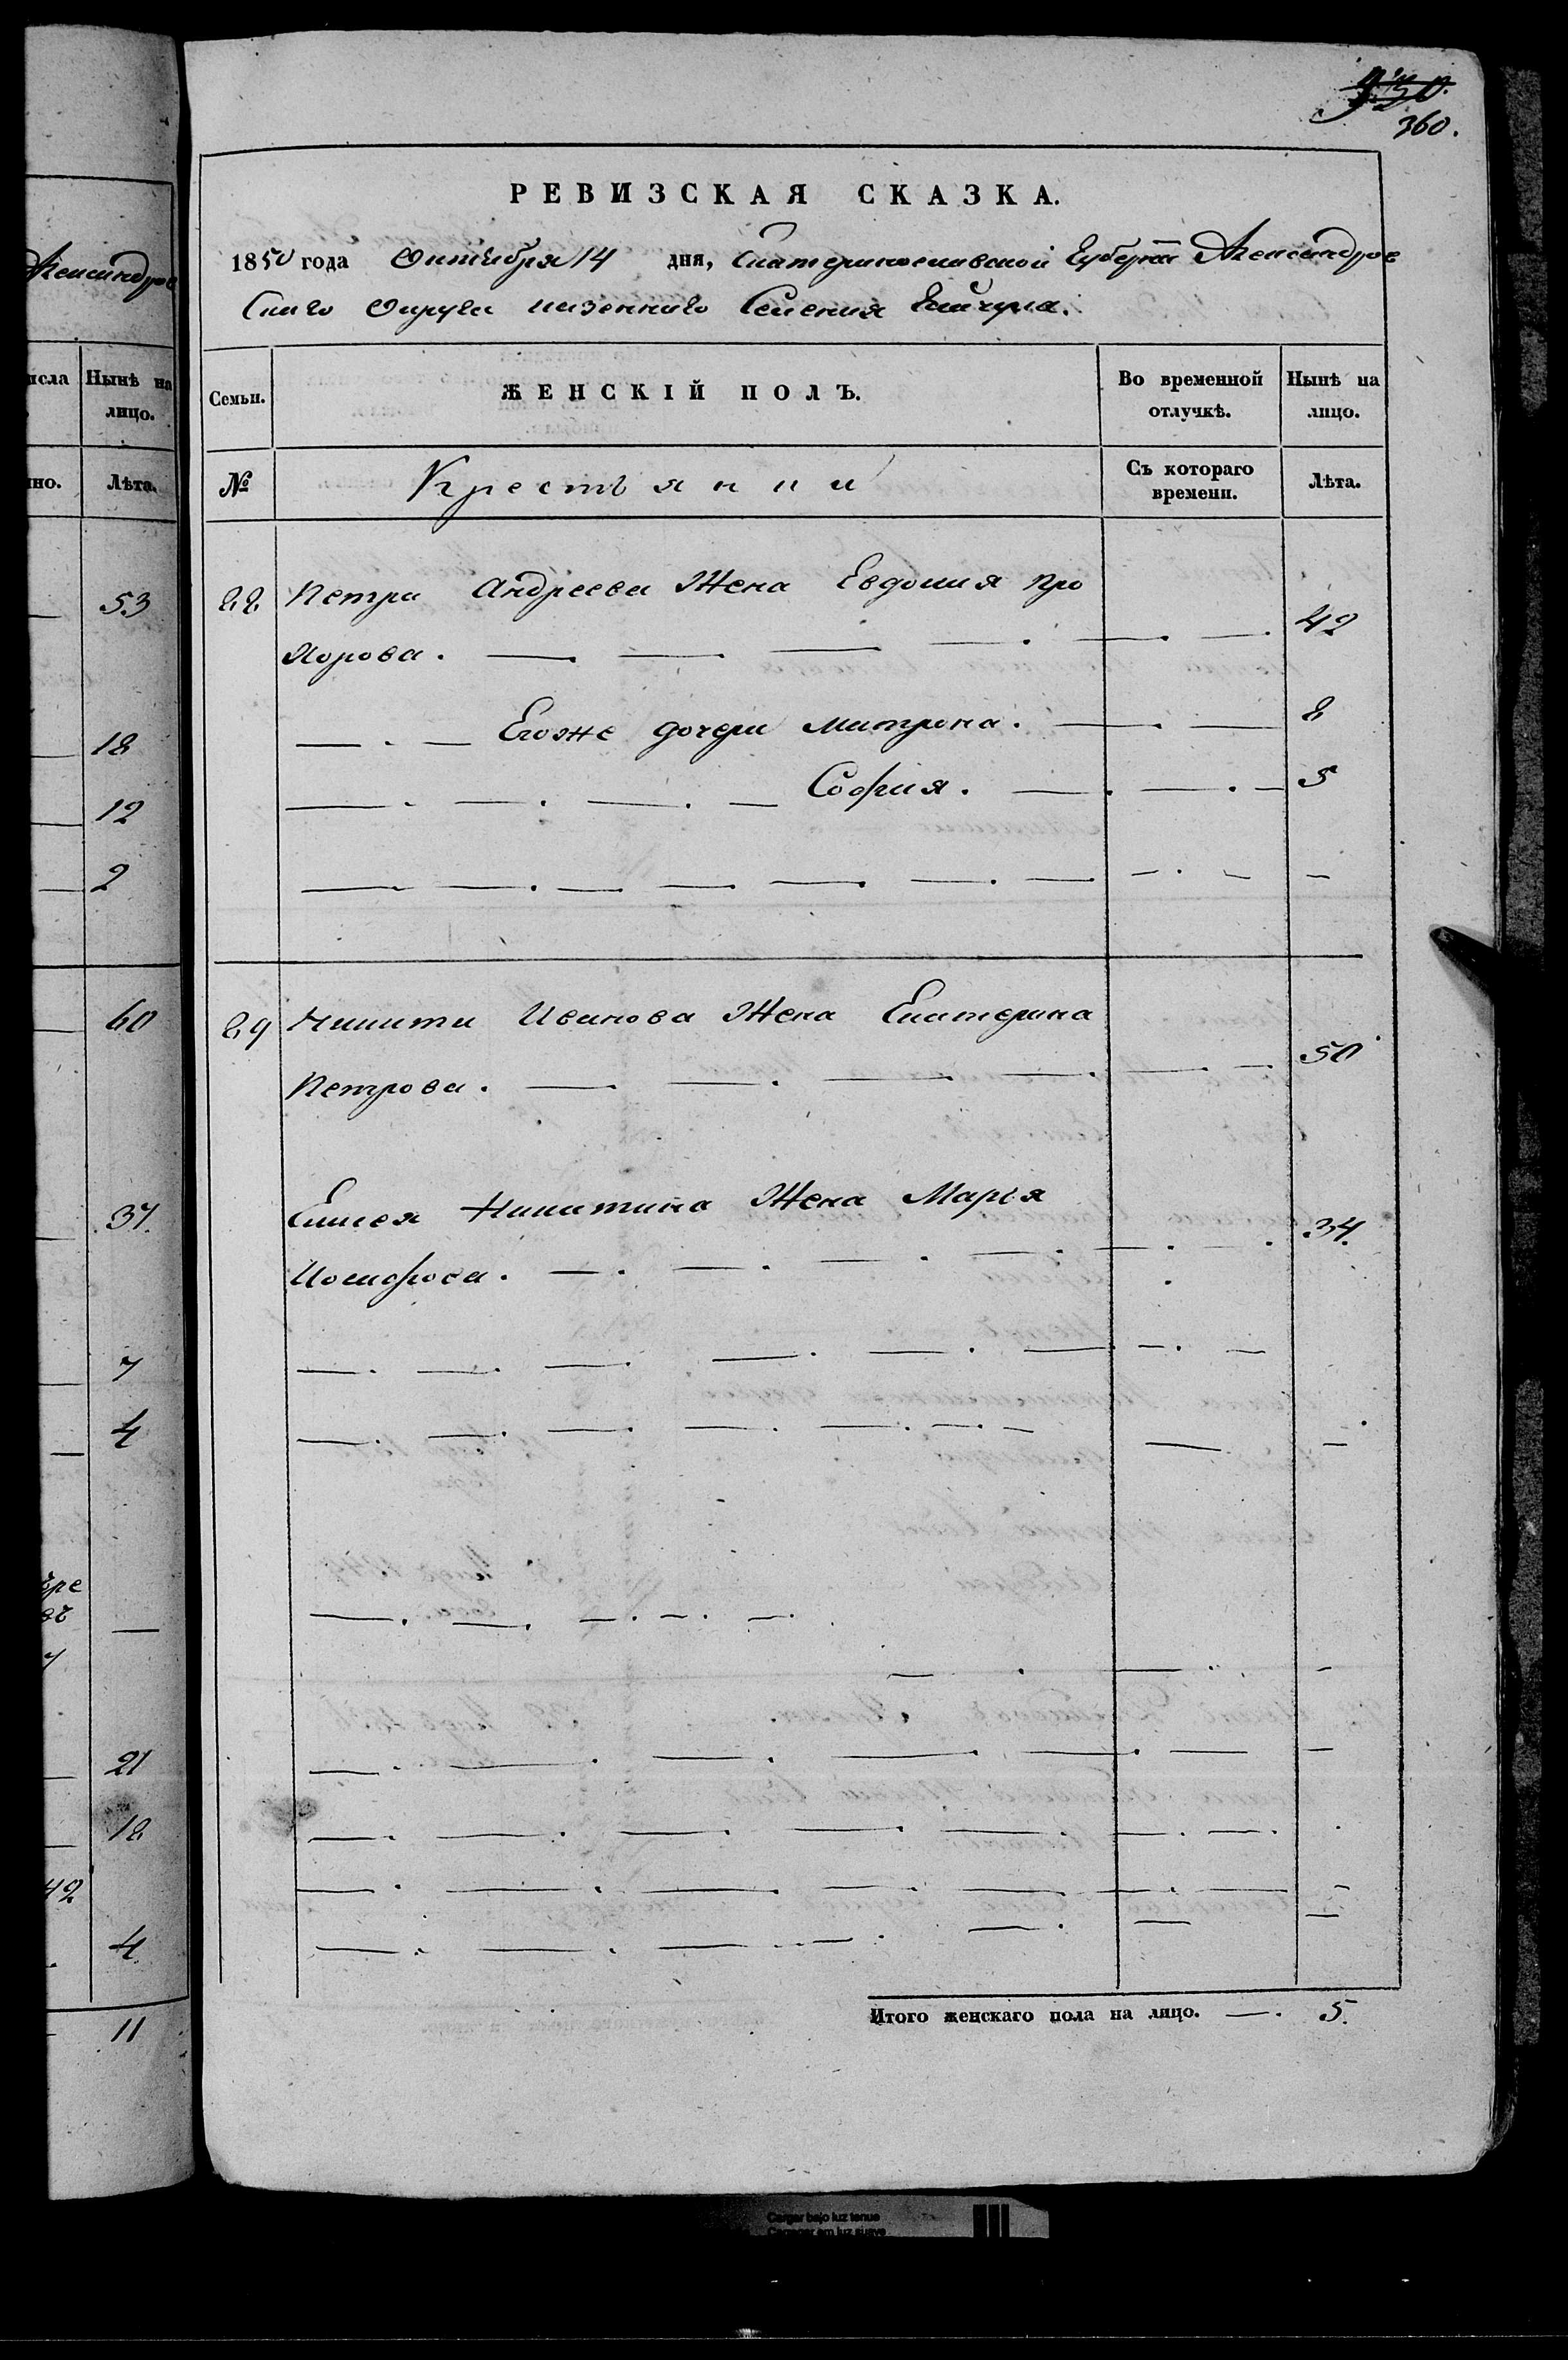 930.
360.
РЕВИЗСКАЯ СКАЗКА.
1850 года Октября 14 дня, Екатеринославской Губерніи Александров
скаго Округа казеннаго Селенія Гайчула.
Александров
Семьи.
ЖЕНСКІЙ ПОЛЪ.
Во временной отлучкѣ.
Нынѣ на лицо.
№
Крестьянки
Съ котораго времени.
Лѣта.
88 Петра Андреева Жена Евдокия Про
хорова. 42
Егоже дочери Матрона. 8
София. 5
89 Никиты Иванова Жена Екатерина
Петрова. 50
Елисея Никитина Жена Марія
Иосифова. 34.
Итого женскаго пола на лицо. 5.
исла
Нынѣ на
лицо.
но.
Лѣта.
53
18
12
2
60
37.
7
4
21
18
42
4
11
Cargar bajo luz tenue